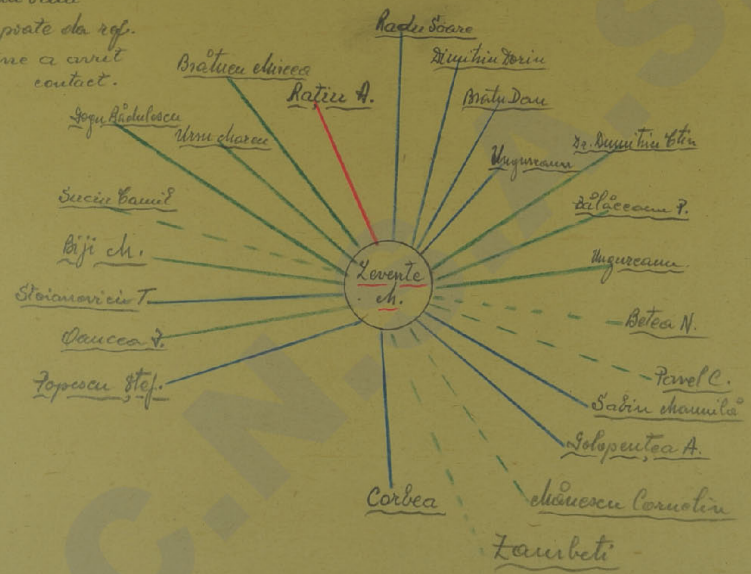 poate da ref.
a avut
contact.
Radu Soare
Dimitriu Dorin
Brătucu Mircea
Rațiu A.
Bratu Dan
Gogu Rădulescu
Ursu Marcu
Ungureanu
Dr. Dumitriu Ctin
Suciu Camil
Bălăceanu P.
Biji M.
Ungureanu
Levente
M.
Stoianoviciu T.
Betea N.
Oancea I.
Popescu Ștef.
Pavel C.
Sabin Manuilă
Golopenția A.
Corbea
Mănescu Corneliu
Zambeti
C.N.S.A.S